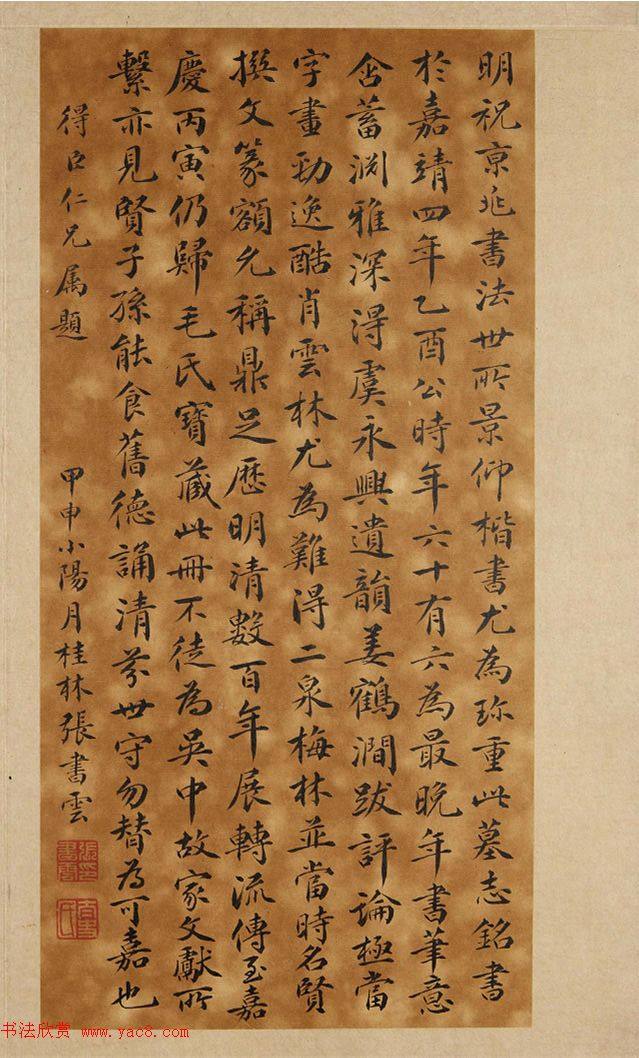 明祝京兆書法世所景仰楷書尤為珍重此墓志銘書
於嘉靖四年乙酉公時年六十有六為最晚年書筆意
含蓄渊雅深得虞永興遺韻姜鶴澗跋評論極當
字畫勁逸酷肖雲林尤為難得二泉梅林並當時名賢
撰文篆額允稱鼎足歷明清數百年展轉流傳至嘉
慶丙寅仍歸毛氏寶藏此冊不徒為吳中故家文獻所
繫亦見賢子孫能食舊德誦清芬世守勿替為可嘉也
得臣仁兄属題
甲申小陽月桂林張書雲
書法欣赏 www.yac8.com